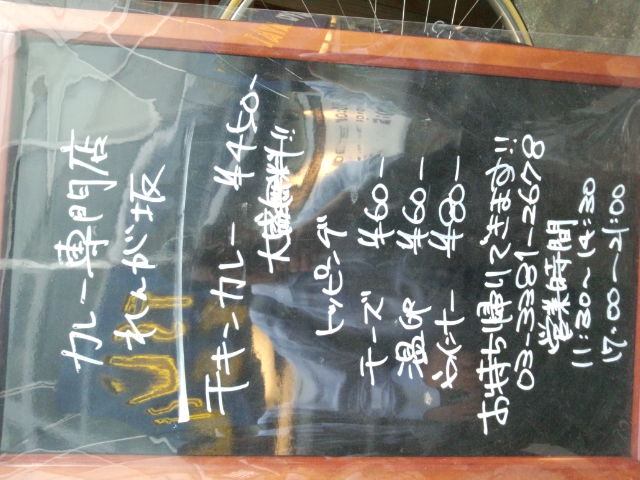 カレー専門店
れんが坂
チキンカレー ¥450-
大盛無料!!
トッピング
チーズ ¥60-
温卵 ¥60-
ウインナー ¥80-
お持ち帰りできます!!
03-3381-2678
営業時間
11:30〜14:30
17:00〜21:00